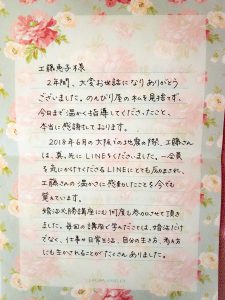 工藤恵子様
2年間、大変お世話になりありがとう
ございました。のんびり屋の私を見捨てず、
今日まで温かく指導してくださったこと、
本当に感謝しております。
2018年6月の大阪での地震の際、工藤さん
は、真っ先にLINEをくださいました。一会員
を気にかけてくださるLINEにとても励まされ、
工藤さんの温かさに感動したことを今でも
覚えています。
婚活必勝講座にも何度も参加させて頂き
ました。毎回の講座で学んだことは、婚活だけ
でなく、仕事や日常生活、自分の生き方、考え方
にも生かされることがたくさんありました。